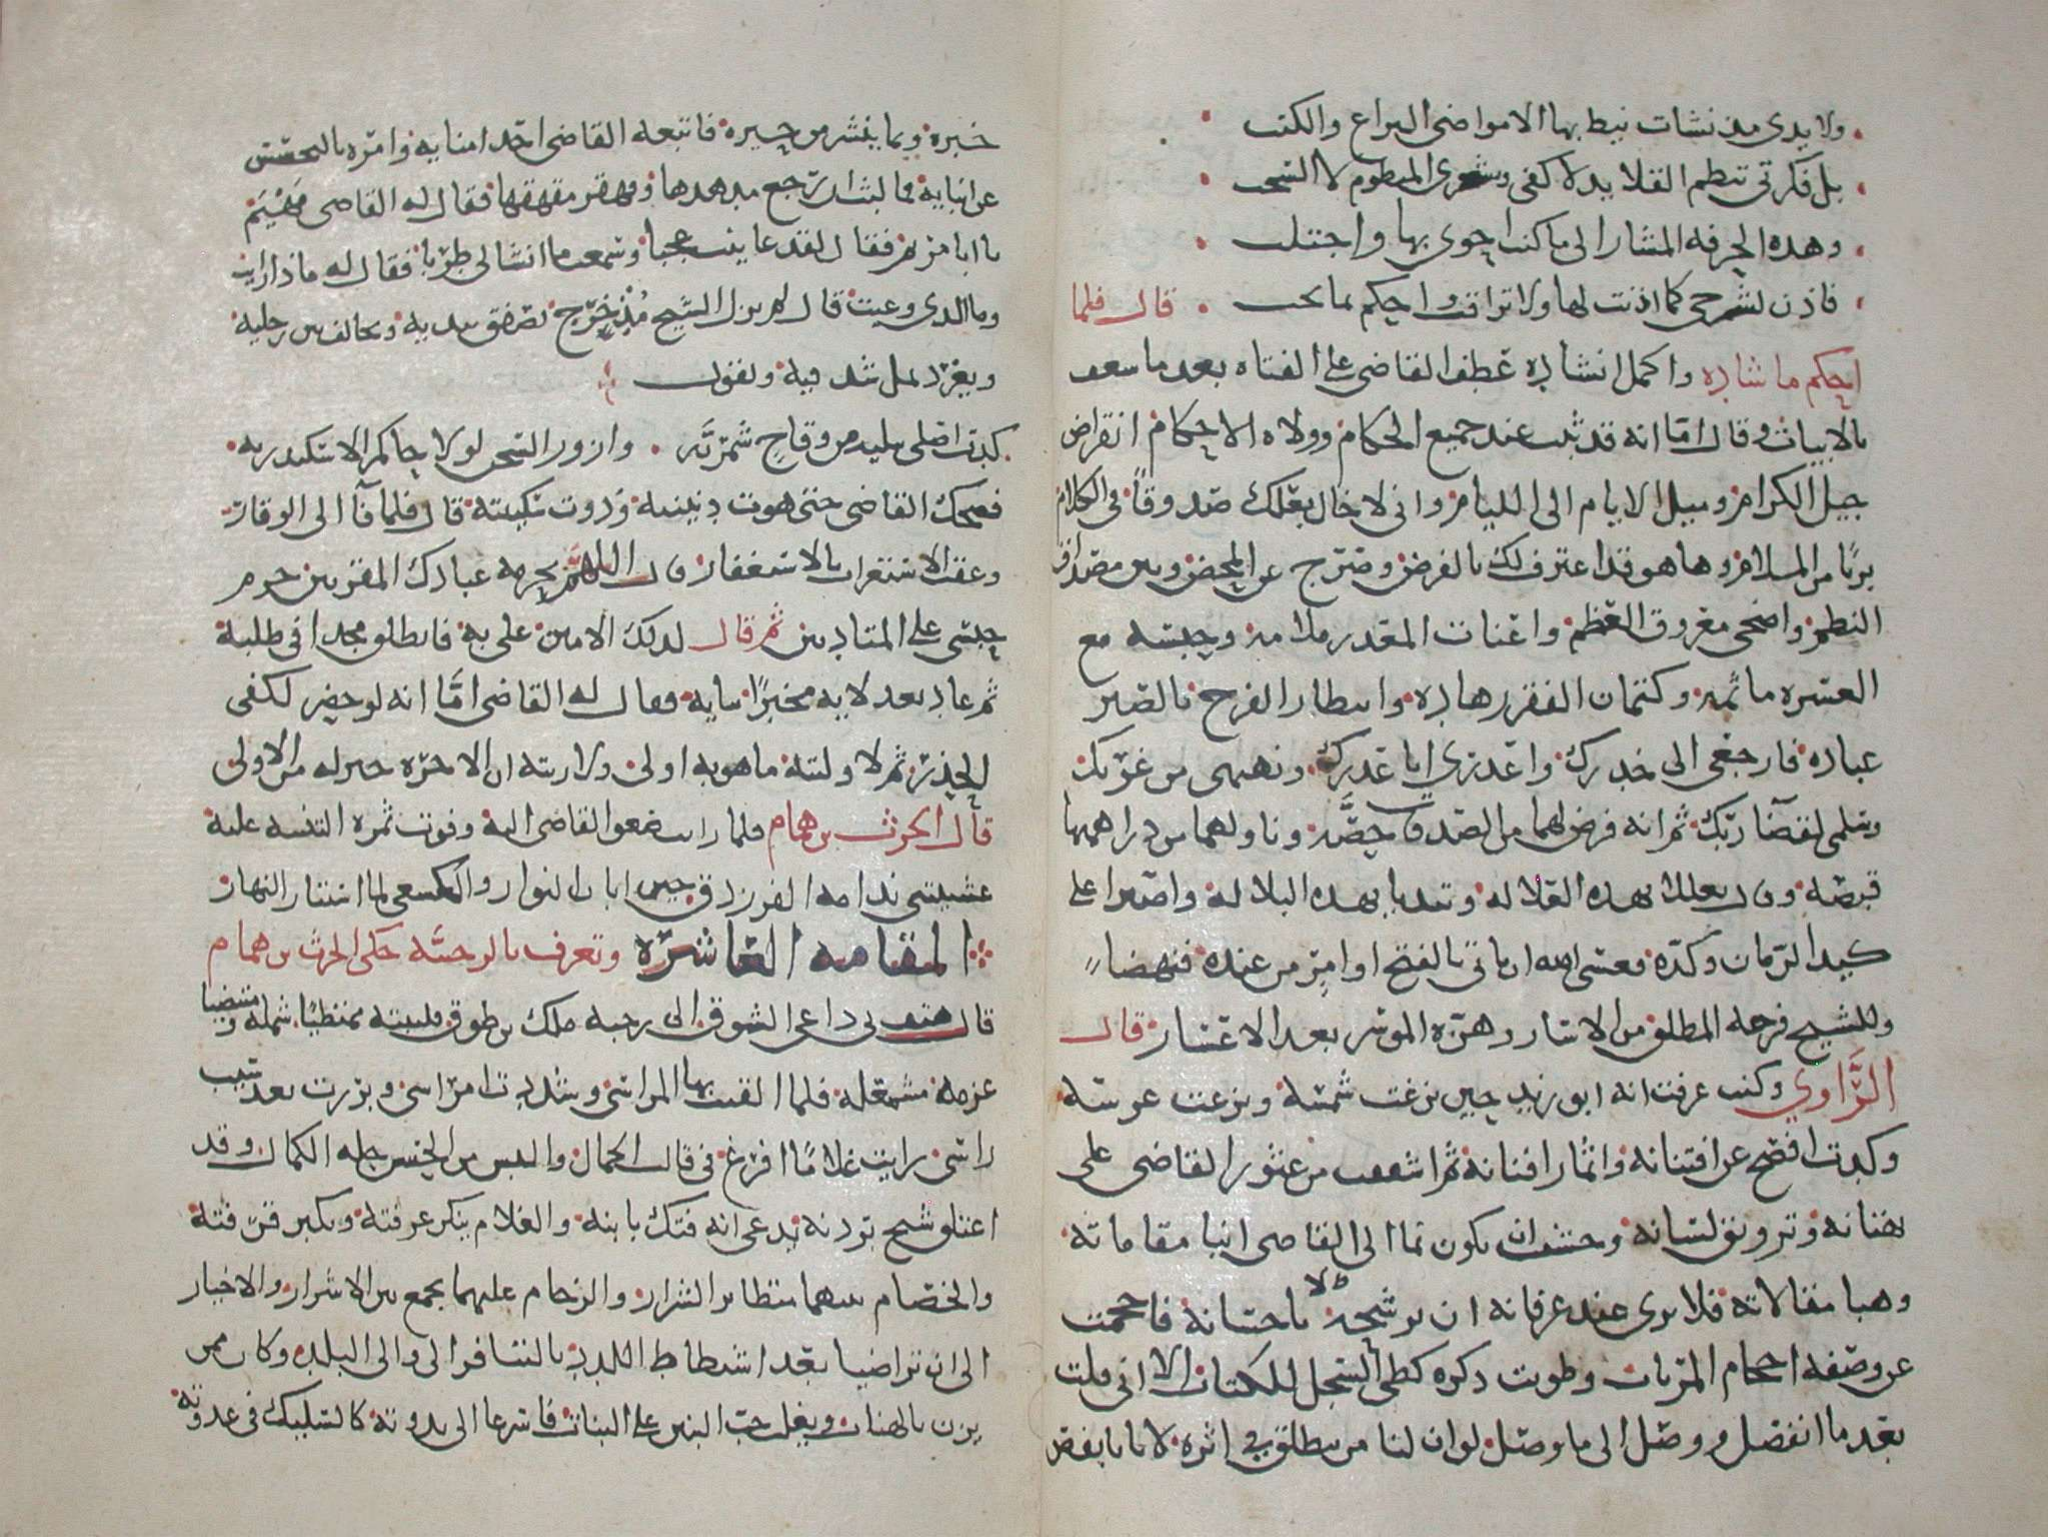 ولا يدى مذ نشات نيط بها الا مواضى اليراع والكتب
بل فكرتى تنظم القلايد لا كفى وشعرى المنظوم لا السخب
وهذه الحرفه المشار الى ما كنت احوى بها واجتلب
فاذن لشرحى كما اذنت لها ولا تراقب واحكم بما يجب قال فلما
احكم ما شاده واكمل انشاده عطف القاضى على الفتاه بعد ما شعف
بالابيات وقال اما انه قد ثبت عند جميع الحكام وولاه الاحكام انقراض
جيل الكرام وميل الايام الى الليام وانى لاخال بعلك صدوقا فى الكلام
بريا من الملام وها هو قد اعترف لك بالقرض وصرح عن المحض وبين مصداق
النظم واضحى معروق العظم واعنات المعذر ملامه وحبسه مع
العسره ماثمه وكتمان الفقر زهاده وانتظار الفرج بالصبر
عباده فارجعى الى خدرك واعذرى ابا عذرك ونهنهى من غربك
وسلمى لقضآ ربك ثم انه فرض لهما من الصدقات حصه وناولهما من دراهمها
قبصه وقال تعللا بهذه العلاله وتنديا بهذه البلاله واصبرا على
كيد الزمان وكده فعسى الله ان ياتى بالفتح او امر من عنده فنهضا
وللشيخ فرحه المطلق من الاسار وهزه الموسر بعد الاعسار قال
الراوي وكنت عرفت انه ابو زيد حين بزغت شمسه ونزغت عرسه
وكدت افصح عن افتنانه واثمار افنانه ثم اشفقت من عثور القاضى على
بهتانه وتزويق لسانه وخشيت ان يكون نما الى القاضى انبا مقاماته
وهبا مقالاته فلا يرى عند عرفانه ان يرشحه لا باحسانه فاحجمت
عن وصفه احجام المرتاب وطويت ذكره كطى السجل للكتاب الا انى قلت
بعد ما انفصل ووصل الى ما وصل لو ان لنا من ينطلق فى اثره لاتانا بفص
خبره وبما ينشر من حبره فاتبعه القاضى احد امنايه وامره بالتجسس
عن انبايه فما لبث ان رجع متدهدها وقهقر مقهقها فقال له القاضى مهيم
يا ابا مريم فقال لقد عاينت عجبا وسمعت ما انشا لى طربا فقال له ماذا رايت
وما الذى وعيت قال لم يزل الشيخ مذ خرج يصفق بيديه ويخالف بين رجليه
ويغرد بمل شدقيه ويقول
كدت اصلى ببليه من وقاح شمريه وازور السجن لولا حاكم الاسكندريه
فضحك القاضى حتى هوت دنيته وذوت سكينته قال فلما فآ الى الوقار
وعقب الاستغراب بالاستغفار قال اللهم بحرمه عبادك المقربين حرم
حبسى على المتادبين ثم قال لذلك الامين على به فانطلق مجدا فى طلبه
ثم عاد بعد لايه مخبرا بنايه فقال له القاضى اما انه لو حضر لكفى
الحذر ثم لاوليته ما هو به اولى ولاريته ان الاخره خير له من الاولى
قال الحرث بن همام فلما رايت صغو القاضى اليه وفوت ثمره التنبيه عليه
غشيتنى ندامه الفرزدق حين ابان النوار والكسعى لما استبان النهار
المقامه العاشره وتعرف بالرحبيه حكى الحرث بن همام
قال هتف بى داعى الشوق الى رحبه ملك بن طوق فلبيته ممتطيا شمله ومنتضيا
عزمه مشمعله فلما القيت بها المراسى وشددت امراسى وبرزت بعد سبت
راسى رايت غلاما افرغ فى قالب الجمال والبس من الحسن حله الكمال وقد
اعتلق شيخ بردنه يدعى انه فتك بابنه والغلام ينكر عرفته ويكبر قرفته
والخصام بينهما متطاير الشرار والزحام عليهما يجمع بين الاشرار والاخيار
الى ان تراضيا بعد اشتطاط اللدد بالتنافر الى والى البلد وكان ممن
يزن بالهنات ويغلب حب البنين على البنات فاسرعا الى ندوته كالسليك فى عدوته